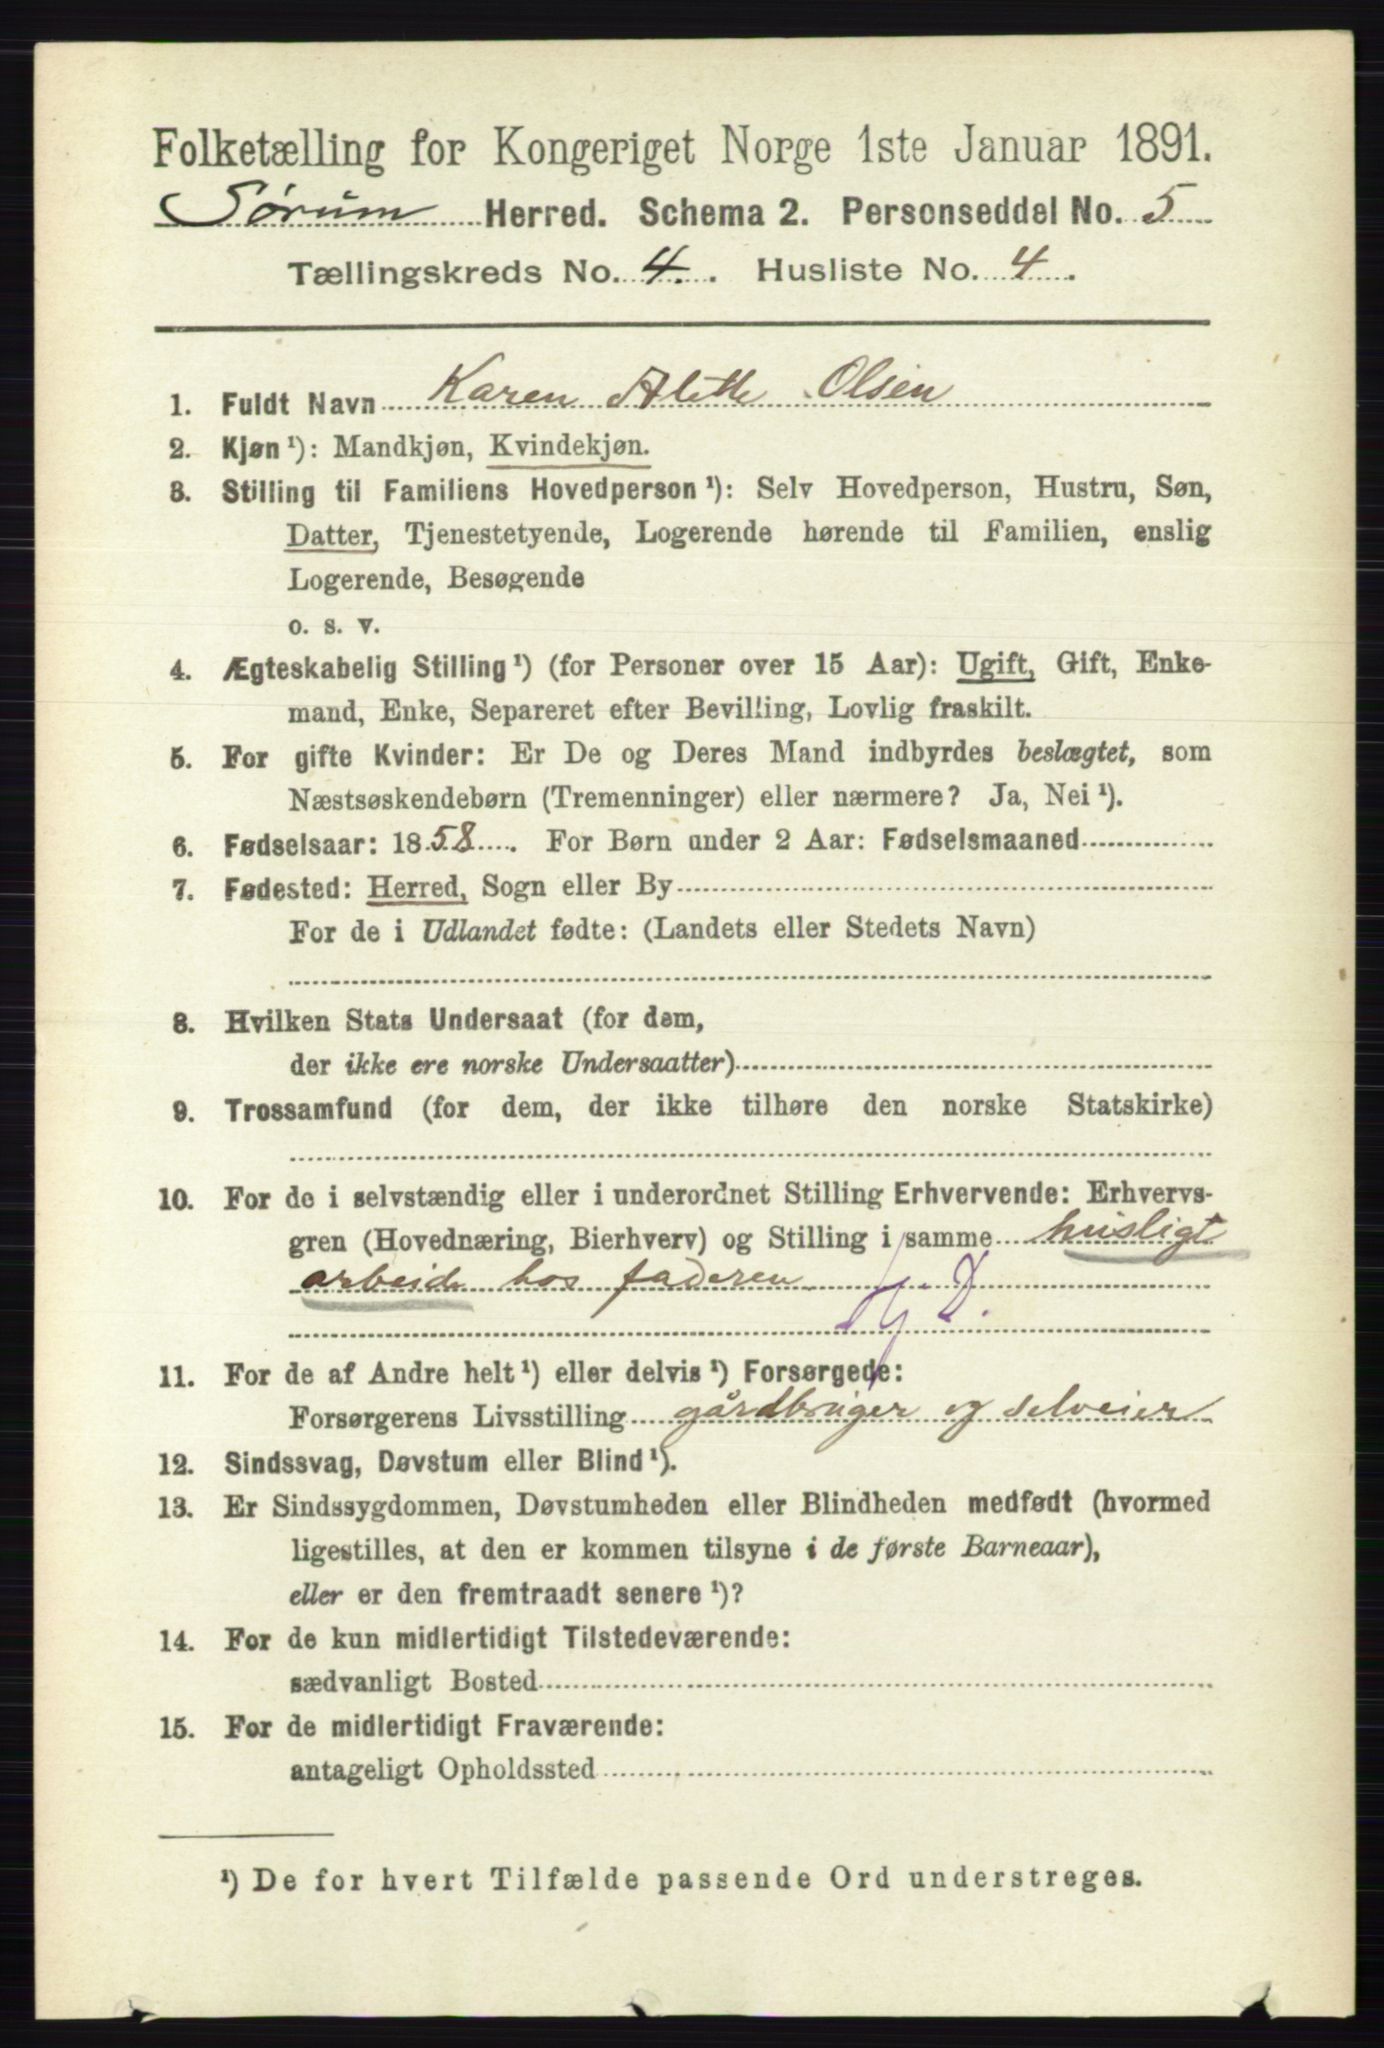 Folketælling for Kongeriget Norge 1ste Januar 1891.
Sørum Herred. Schema 2. Personseddel No. 5
Tællingskreds No. 4. Husliste No. 4.
1. Fuldt Navn Karen Alette Olsen
2. Kjøn¹): Mandkjøn, Kvindekjøn.
3. Stilling til Familiens Hovedperson¹): Selv Hovedperson, Hustru, Søn,
Datter, Tjenestetyende, Logerende hørende til Familien, enslig
Logerende, Besøgende
o. s. v.
4. Ægteskabelig Stilling¹) (for Personer over 15 Aar): Ugift, Gift, Enke-
mand, Enke, Separeret efter Bevilling, Lovlig fraskilt.
5. For gifte Kvinder: Er De og Deres Mand indbyrdes beslægtet, som
Næstsøskendebørn (Tremenninger) eller nærmere? Ja, Nei¹).
6. Fødselsaar: 1858. For Børn under 2 Aar: Fødselsmaaned
7. Fødested: Herred, Sogn eller By
For de i Udlandet fødte: (Landets eller Stedets Navn)
8. Hvilken Stats Undersaat (for dem,
der ikke ere norske Undersaatter)
9. Trossamfund (for dem, der ikke tilhøre den norske Statskirke)
10. For de i selvstændig eller i underordnet Stilling Erhvervende: Erhvervs-
gren (Hovednæring, Bierhverv) og Stilling i samme husligt
arbeide hos faderen
11. For de af Andre helt¹) eller delvis¹) Forsørgede:
Forsørgerens Livsstilling gårdbruger og selveier
12. Sindssvag, Døvstum eller Blind¹).
13. Er Sindssygdommen, Døvstumheden eller Blindheden medfødt (hvormed
ligestilles, at den er kommen tilsyne i de første Barneaar),
eller er den fremtraadt senere¹)?
14. For de kun midlertidigt Tilstedeværende:
sædvanligt Bosted
15. For de midlertidigt Fraværende:
antageligt Opholdssted
¹) De for hvert Tilfælde passende Ord understreges.